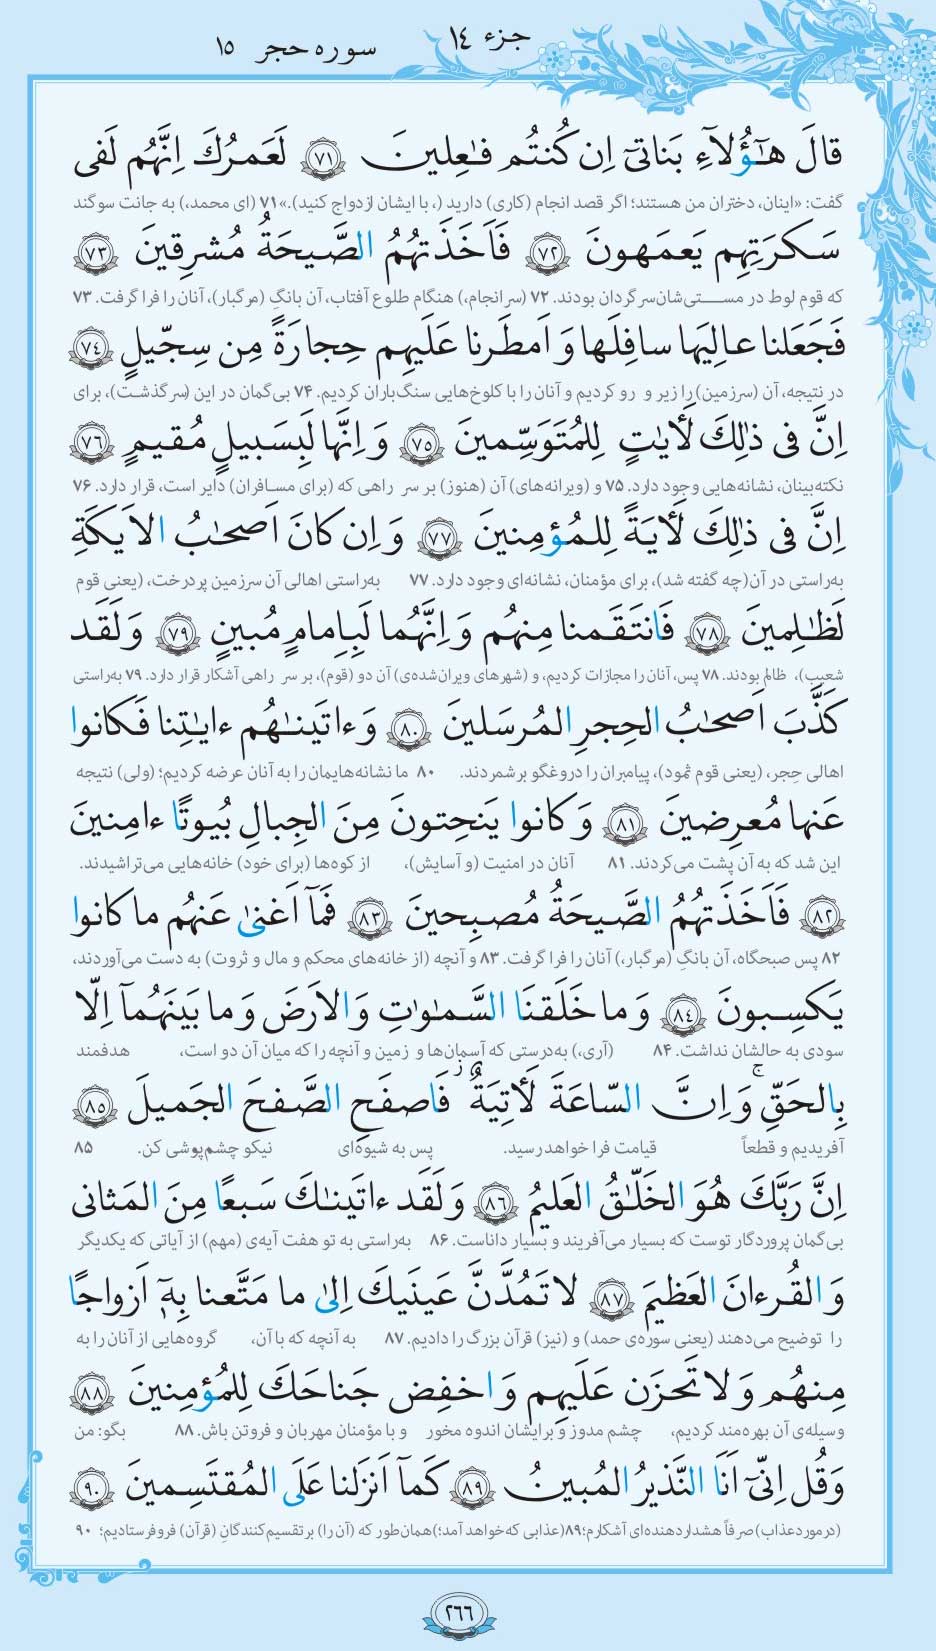 جزء ۱۴
سوره حجر ۱۵
قالَ هٰٓؤُلآٰءِ بَناتىٓ اِن كُنتُم فٰعِلينَ ﴿٧١﴾ لَعَمرُكَ اِنَّهُم لَفى
گفت: «اینان، دختران من هستند؛ اگر قصد انجام (کاری) دارید (، با ایشان ازدواج کنید).» ۷۱ (ای محمد،) به جانت سوگند
سَكرَتِهِم يَعمَهونَ ﴿٧٢﴾ فَاَخَذَتهُمُ الصَّيحَةُ مُشرِقينَ ﴿٧٣﴾
که قوم لوط در مستی‌شان سرگردان بودند. ۷۲ (سرانجام،) هنگام طلوع آفتاب، آن بانگِ (مرگبار)، آنان را فرا گرفت. ۷۳
فَجَعَلنا عالِيَها سافِلَها وَ اَمطَرنا عَلَيهِم حِجارَةً مِن سِجّيلٍ ﴿٧٤﴾
در نتیجه، آن (سرزمین) را زیر و رو کردیم و آنان را با کلوخ‌هایی سنگ‌باران کردیم. ۷۴ بی‌گمان در این (سرگذشت)، برای
اِنَّ فى ذٰلِكَ لَأٰيٰتٍ لِلمُتَوَسِّمينَ ﴿٧٥﴾ وَ اِنَّها لَبِسَبيلٍ مُقيمٍ ﴿٧٦﴾
نکته‌بینان، نشانه‌هایی وجود دارد. ۷۵ و (ویرانه‌های) آن (هنوز) بر سر راهی که (برای مسافران) دایر است، قرار دارد. ۷۶
اِنَّ فى ذٰلِكَ لَأٰيَةً لِلمُؤمِنينَ ﴿٧٧﴾ وَ اِن كانَ اَصحٰبُ الاَيكَةِ
به‌راستی در آن(چه گفته شد)، برای مؤمنان، نشانه‌ای وجود دارد. ۷۷ به‌راستی اهالی آن سرزمین پردرخت، (یعنی قوم
لَظٰلِمينَ ﴿٧٨﴾ فَانتَقَمنا مِنهُم وَ اِنَّهُما لَبِاِمامٍ مُبينٍ ﴿٧٩﴾ وَ لَقَد
شعیب)، ظالم بودند. ۷۸ پس، آنان را مجازات کردیم، و (شهرهای ویران‌شده‌ی) آن دو (قوم)، بر سر راهی آشکار قرار دارد. ۷۹ به‌راستی
كَذَّبَ اَصحٰبُ الحِجرِ المُرسَلينَ ﴿٨٠﴾ وَ ءاتَينٰهُم ءايٰتِنا فَكانوا
اهالی حِجر، (یعنی قوم ثمود)، پیامبران را دروغگو برشمردند. ۸۰ ما نشانه‌هایمان را به آنان عرضه کردیم؛ (ولی) نتیجه
عَنها مُعرِضينَ ﴿٨١﴾ وَ كانوا يَنحِتونَ مِنَ الجِبالِ بُيوتًا ءامِنينَ
این شد که به آن پشت می‌کردند. ۸۱ آنان در امنیت (و آسایش)، از کوه‌ها (برای خود) خانه‌هایی می‌تراشیدند.
﴿٨٢﴾ فَاَخَذَتهُمُ الصَّيحَةُ مُصبِحينَ ﴿٨٣﴾ فَمآ اَغنىٰ عَنهُم ما كانوا
۸۲ پس صبحگاه، آن بانگِ (مرگبار،) آنان را فرا گرفت. ۸۳ و آنچه (از خانه‌های محکم و مال و ثروت) به دست می‌آوردند،
يَكسِبونَ ﴿٨٤﴾ وَ ما خَلَقنَا السَّمٰوٰتِ وَ الاَرضَ وَ ما بَينَهُمآ اِلّا
سودی به حالشان نداشت. ۸۴ (آری،) به‌درستی که آسمان‌ها و زمین و آنچه را که میان آن دو است، هدفمند
بِالحَقِّ ۗ وَ اِنَّ السّاعَةَ لَأٰتِيَةٌ ۖ فَاصفَحِ الصَّفحَ الجَميلَ ﴿٨٥﴾
آفریدیم و قطعاً قیامت فرا خواهد رسید. پس به شیوه‌ای نیکو چشم‌پوشی کن. ۸۵
اِنَّ رَبَّكَ هُوَ الخَلّٰقُ العَليمُ ﴿٨٦﴾ وَ لَقَد ءاتَينٰكَ سَبعًا مِنَ المَثانى
بی‌گمان پروردگار توست که بسیار می‌آفریند و بسیار داناست. ۸۶ به‌راستی به تو هفت آیه‌ی (مهم) از آیاتی که یکدیگر
وَ القُرءانَ العَظيمَ ﴿٨٧﴾ لا تَمُدَّنَّ عَينَيكَ اِلىٰ ما مَتَّعنا بِهٖٓ اَزواجًا
را توضیح می‌دهند (یعنی سوره‌ی حمد) و (نیز) قرآن بزرگ را دادیم. ۸۷ به آنچه که با آن، گروه‌هایی از آنان را به
مِنهُم وَ لا تَحزَن عَلَيهِم وَ اخفِض جَناحَكَ لِلمُؤمِنينَ ﴿٨٨﴾
وسیله‌ی آن بهره‌مند کردیم، چشم مدوز و برایشان اندوه مخور و با مؤمنان مهربان و فروتن باش. ۸۸ بگو: من
وَ قُل اِنّىٓ اَنَا النَّذيرُ المُبينُ ﴿٨٩﴾ كَمآ اَنزَلنا عَلَى المُقتَسِمينَ ﴿٩٠﴾
(در مورد عذاب) صرفاً هشداردهنده‌ای آشکارم؛ ۸۹ (عذابی که خواهد آمد؛) همان‌طور که (آن را) بر تقسیم‌کنندگانِ (قرآن) فرو فرستادیم؛ ۹۰
۲۶۶